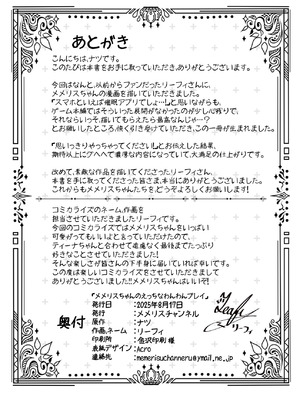 あとがき
こんにちは、ナツです。
このたびは本書をお手に取っていただき、ありがとうございます。
今回はなんと、以前からファンだったリーフィさんに、
メメリスちゃんの漫画を描いていただきました。
「スマホといえば催眠アプリでしょ…」と思いながらも、
ゲーム本編ではそういった展開がなかったのが少し心残りで、
それならいっそ、描いてもらえたら最高なんじゃ…？
とお願いしたところ、快く引き受けていただき、この一冊が生まれました。
「思いっきりやっちゃってください！」とお伝えした結果、
期待以上にグヘヘで濃厚な内容になっていて、大満足の仕上がりです。
改めて、素敵な作品を描いてくださったリーフィさん、
本書を手に取ってくださった皆さま、本当にありがとうございます。
これからもメメリスちゃんたちを、どうぞよろしくお願いします！
コミカライズのネーム、作画を
担当させていただきましたリーフィです。
今回のコミカライズでメメリスちゃんをいっぱい
可愛がってもいいよと言っていただけたので、
ティーナちゃんと合わせて遠慮なく最後までたっぷり
好きなことさせていただきました！
そんな楽しさが皆さんの下半身に届いていれば幸いです。
この度は楽しいコミカライズをさせていただきまして
ありがとうございました！！メメリスちゃんはいいぞ！
奥付
『メメリスちゃんのえっちなわんわんプレイ』
発行日：2025年8月17日
発行：メメリスチャンネル
原作：ナツ
作画・ネーム：リーフィ
印刷所：金沢印刷 様
表紙デザイン：Acro
連絡先：memerisuchanneru@ymail.ne.jp
Leafy
リーフィ